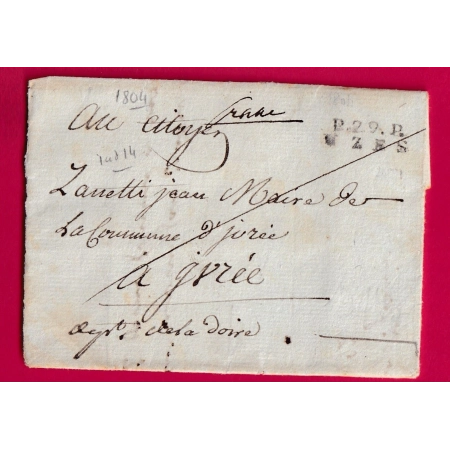 1804
franc
Au Citoyen
P.29.P.
UZES
Ind 14
Zanetti jean Maire de
La Commune d'jvrée
à jvrée
dept. de la doire